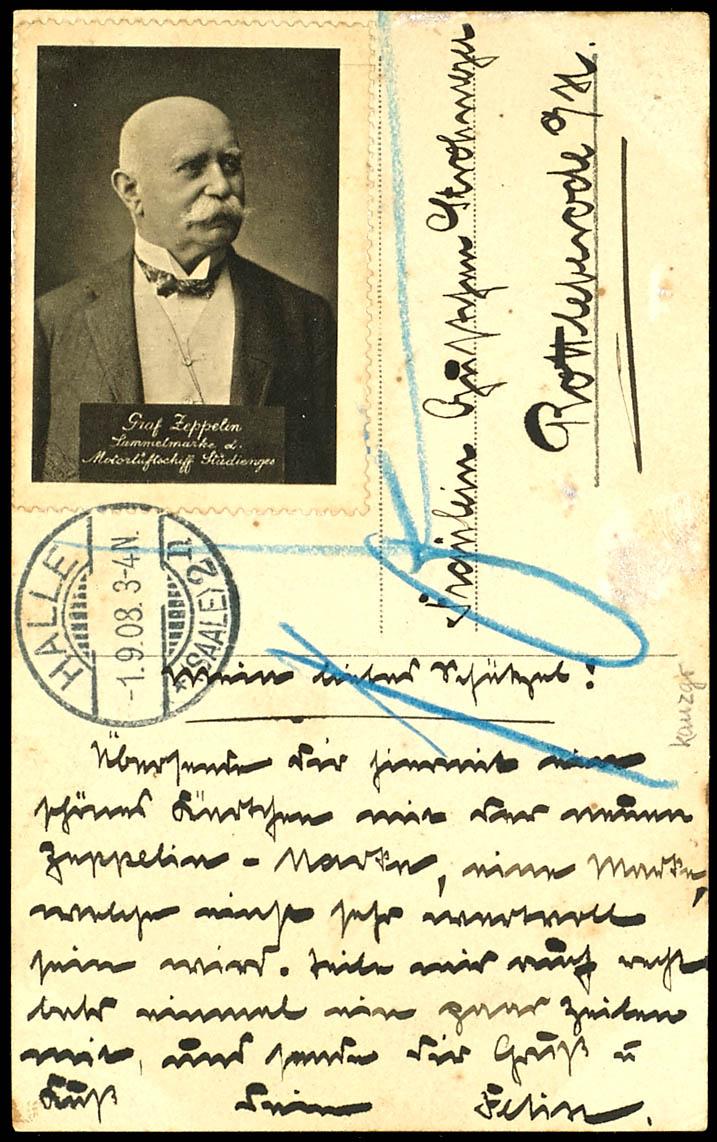 Graf Zeppelin
Sammelmarke d.
Motorluftschiff Studienges
HALLE
-1.9.08. 3-4N.
*(SAALE) 2 n
Fräulein
Rottleberode
Mein liebes Schützel!
kanzgr
Übersende Dir hiermit ein
schönes Kärtchen mit der neuen
Zeppelin - Marke, eine Marke,
welche einst sehr wertvoll
sein wird. Teile mir auch recht
bald einmal ein paar Zeilen
mit, und sende Dir Gruß u
Kuß Dein